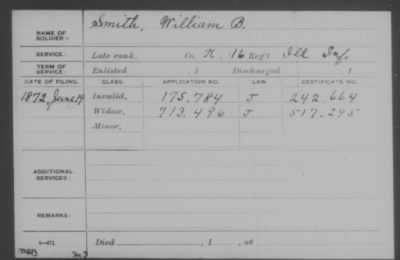 NAME OF SOLDIER: Smith, William B.
SERVICE: Late rank, Co. K, 16 Reg't Ill Inf.
TERM OF SERVICE: Enlisted , 1 Discharged , 1
DATE OF FILING. CLASS. APPLICATION NO. LAW. CERTIFICATE NO.
1872, June 19 Invalid, 175.784 J 242.664
Widow, 713.496 J 517.295
Minor,
ADDITIONAL SERVICES:
REMARKS:
Died , 1 , at